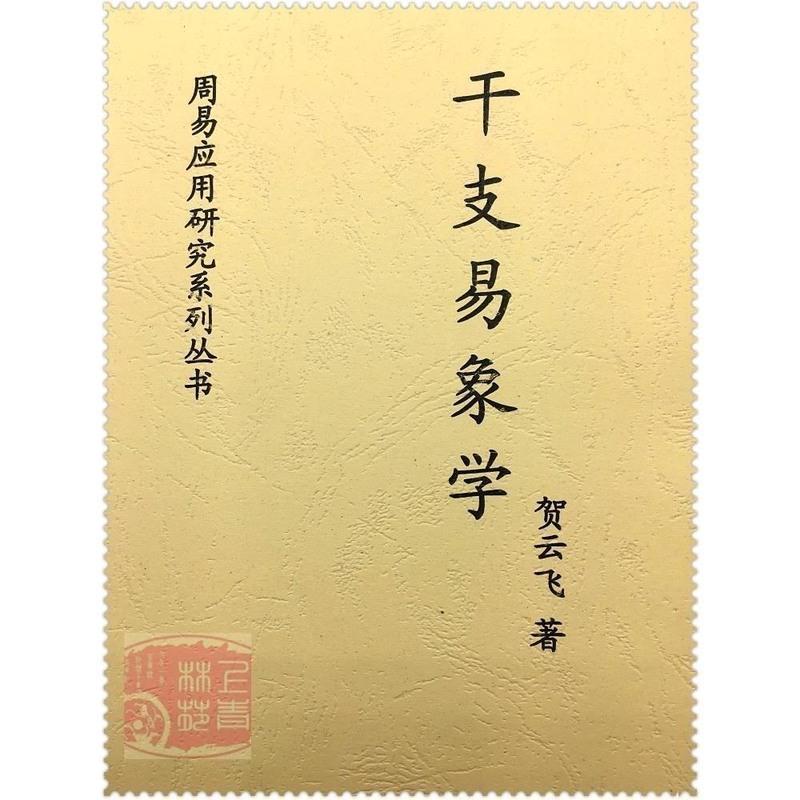 干支易象学
贺云飞 著
周易应用研究系列丛书